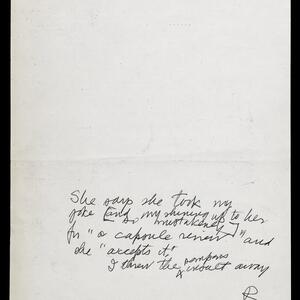 She says she took my
joke [and my shining up to her
so mistakenly]
for "a capsule review" and
she "accepts it".
I threw the pompous insult away
R